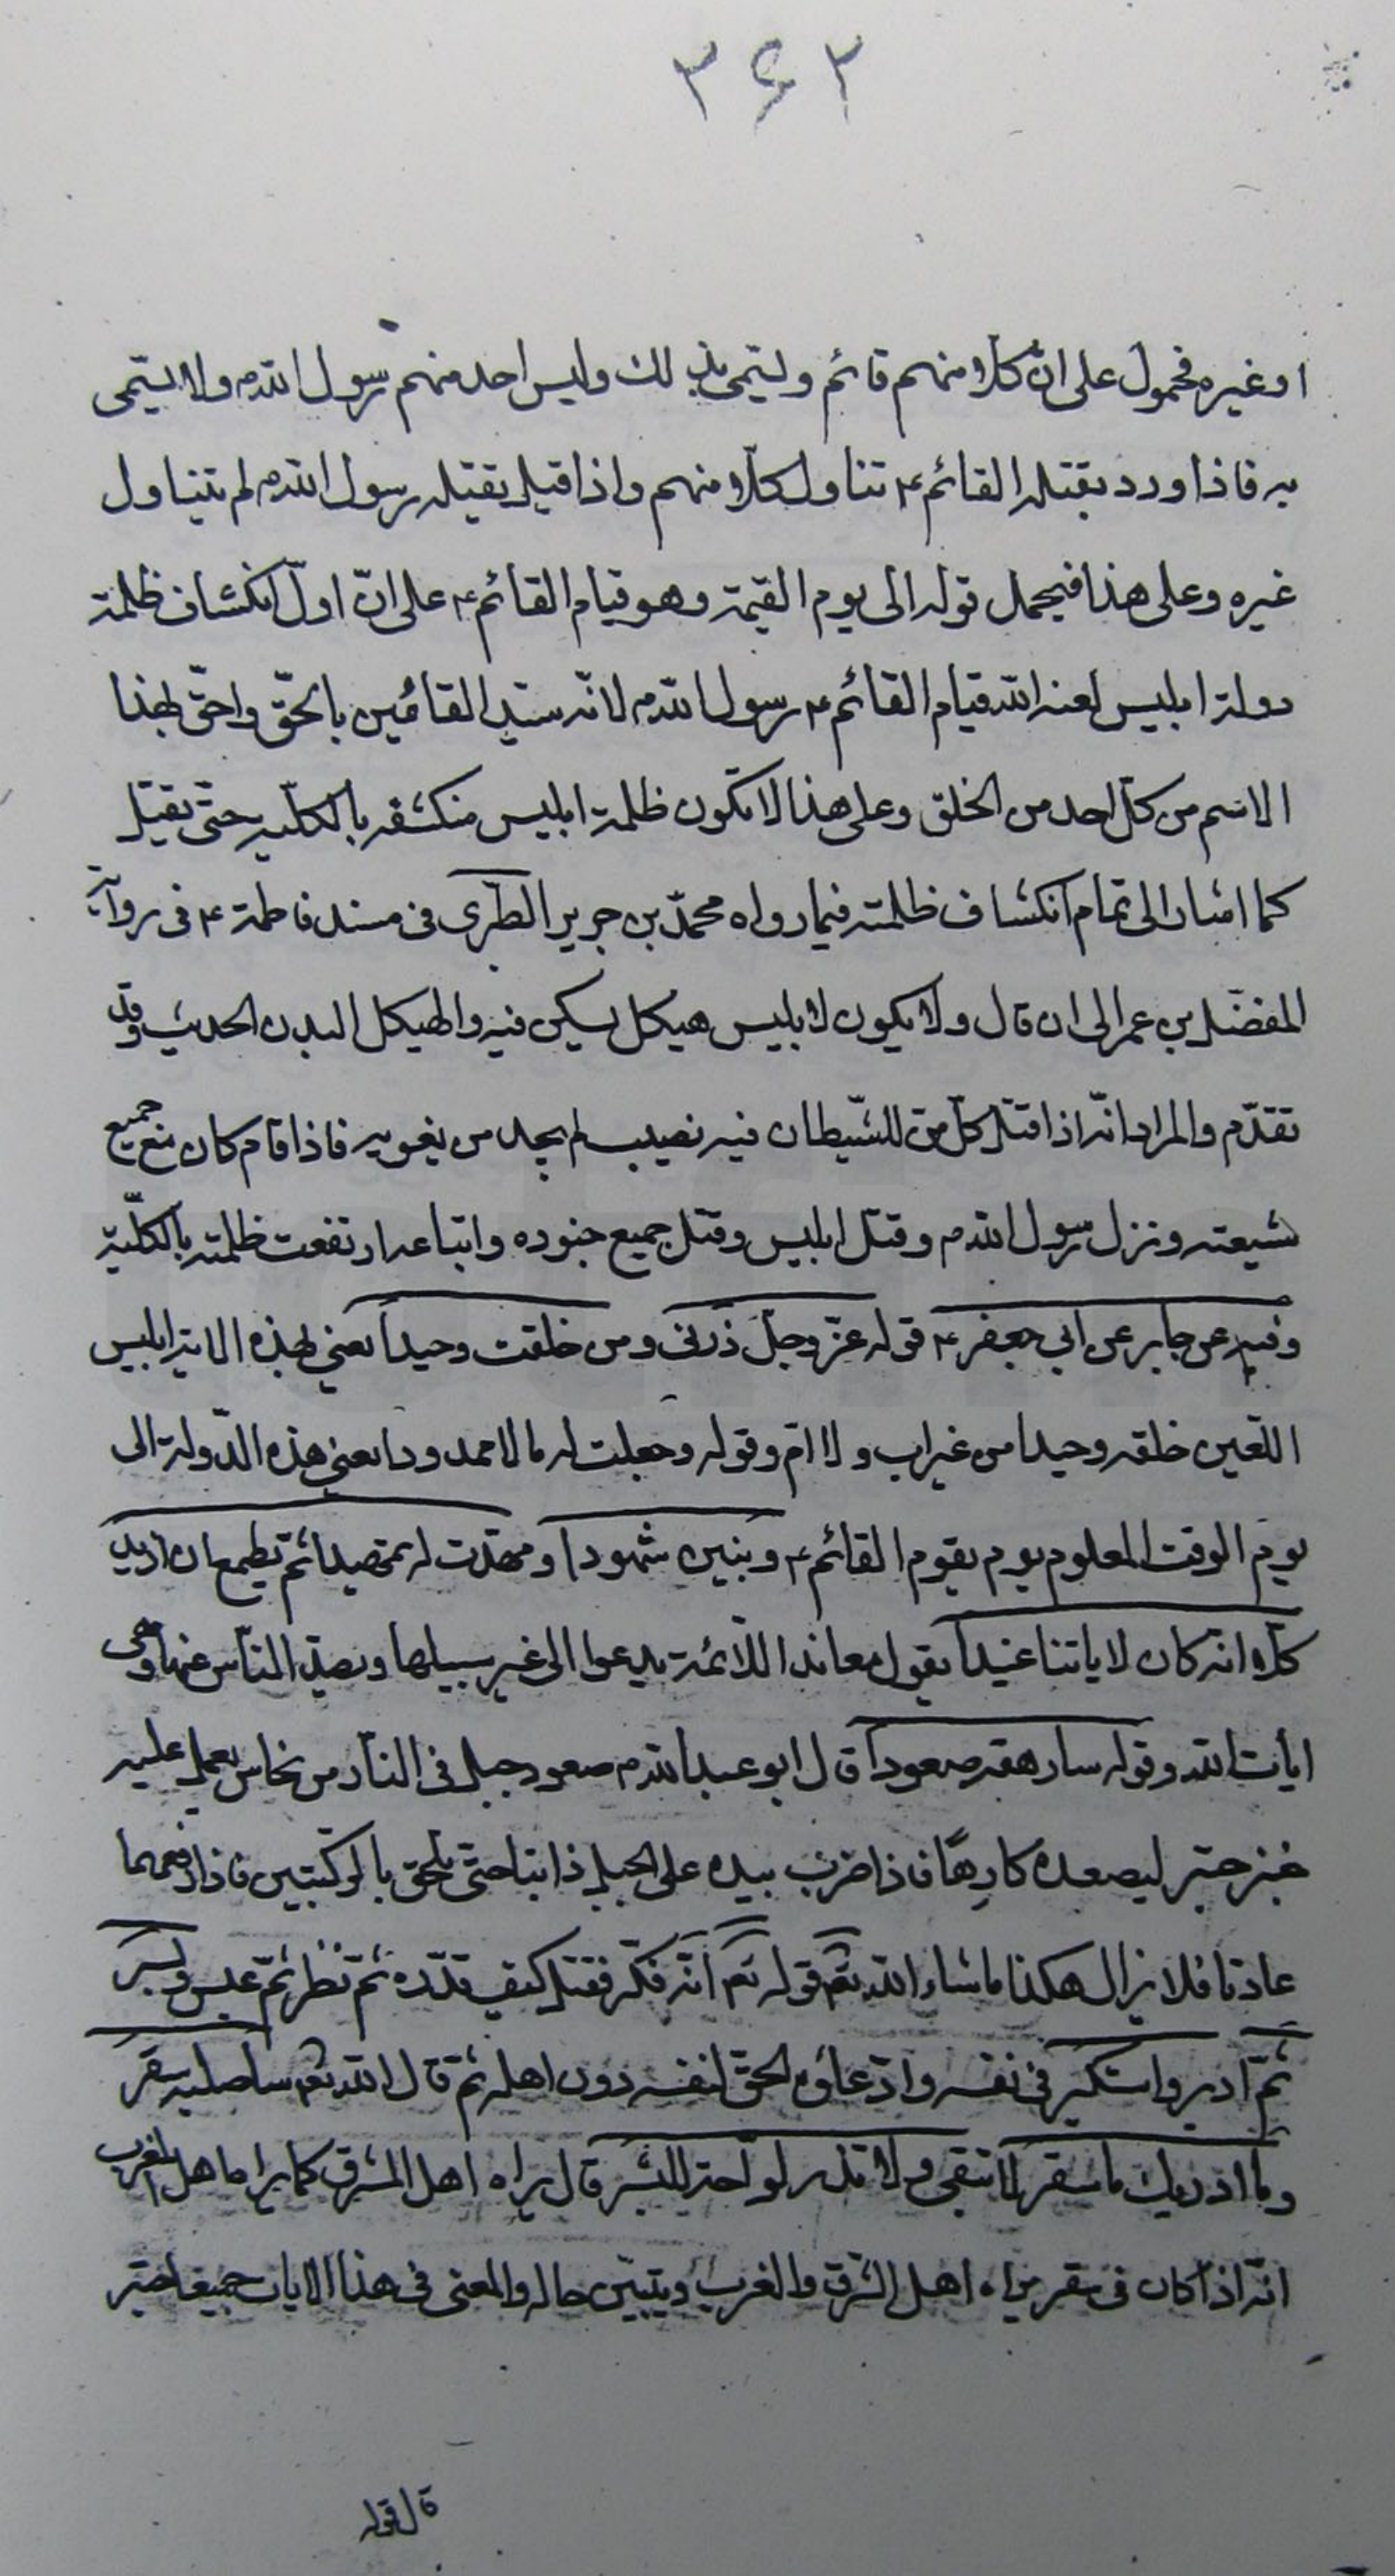 ۳۶۲
او غيره فمحمول على انّ كلّا منهم قائم و يسمّى بذلك وليس احد منهم رسول الله ص ولا يسمّى
به فاذا ورد يقتله القائم ع تناول كلّا منهم واذا قيل يقتله رسول الله ص لم يتناول
غيره وعلى هذا فيحمل قوله الى يوم القيمة وهو قيام القائم ع على انّ اوّل انكشاف ظلمة
دولة ابليس لعنه الله قيام القائم ع رسول الله ص لانّه سيّد القائمين بالحقّ واحقّ بهذا
الاسم من كلّ احد من الخلق وعلى هذا لا تكون ظلمة ابليس منكشفه بالكلّيه حتّى يقتل
كما اشار الى تمام انكشاف ظلمته فيما رواه محمّد بن جرير الطبرى فى مسند فاطمة ع فى رواية
المفضّل بن عمر الى ان قال ولا يكون لابليس هيكل يسكن فيه والهيكل البدن الحديث وقد
تقدّم والمراد انّه اذا قتل كلّ من للشّيطان فيه نصيب لم يجد من يغويه فاذا قام كان مع جميع
شيعته ونزل رسول الله ص وقتل ابليس وقتل جميع جنوده واتباعه ارتفعت ظلمته بالكلّيّة
وفيه عن جابر عن ابى جعفر ع قوله عزّ وجلّ ذرنى ومن خلقت وحيداً يعنى بهذه الاية ابليس
اللعين خلقه وحيدا من غير اب ولا امّ وقوله وجعلت له مالا ممدودا يعنى هذه الدّولة الى
يوم الوقت المعلوم يوم يقوم القائم ع وبنين شهودا ومهّدت له تمهيدا ثم يطمع ان ازيد
كلّا انّه كان لاياتنا عنيداً يقول معاندا للائمّة يدعوا الى غير سبيلها ويصدّ النّاس عنها وهى
ايات الله وقوله سارهقه صعوداً قال ابو عبد الله ع صعود جبل فى النّار من نحاس يحمل عليه
حبتر ليصعده كارهاً فاذا ضرب بيده على الجبل ذابتا حتّى تلحق بالركبتين فاذا رفعهما
عادتا فلا يزال هكذا ما شاء الله تعم قوله تعم انّه فكّر فقتل كيف قدّره ثمّ نظر ثمّ عبس وبسر
ثمّ ادبر واستكبر فى نفسه وادّعاؤه الحق لنفسه دون اهله ثمّ قال الله تعم ساصليه سقر
وما ادريك ما سقر لا تبقى ولا تذر لوّاحة للبشر قال يراه اهل المشرق كما يراه اهل المغرب
انّه اذا كان فى سقر يراه اهل الشّرق والغرب ويتبيّن حاله والمعنى فى هذا الايات جميعا حبتر
قال قوله